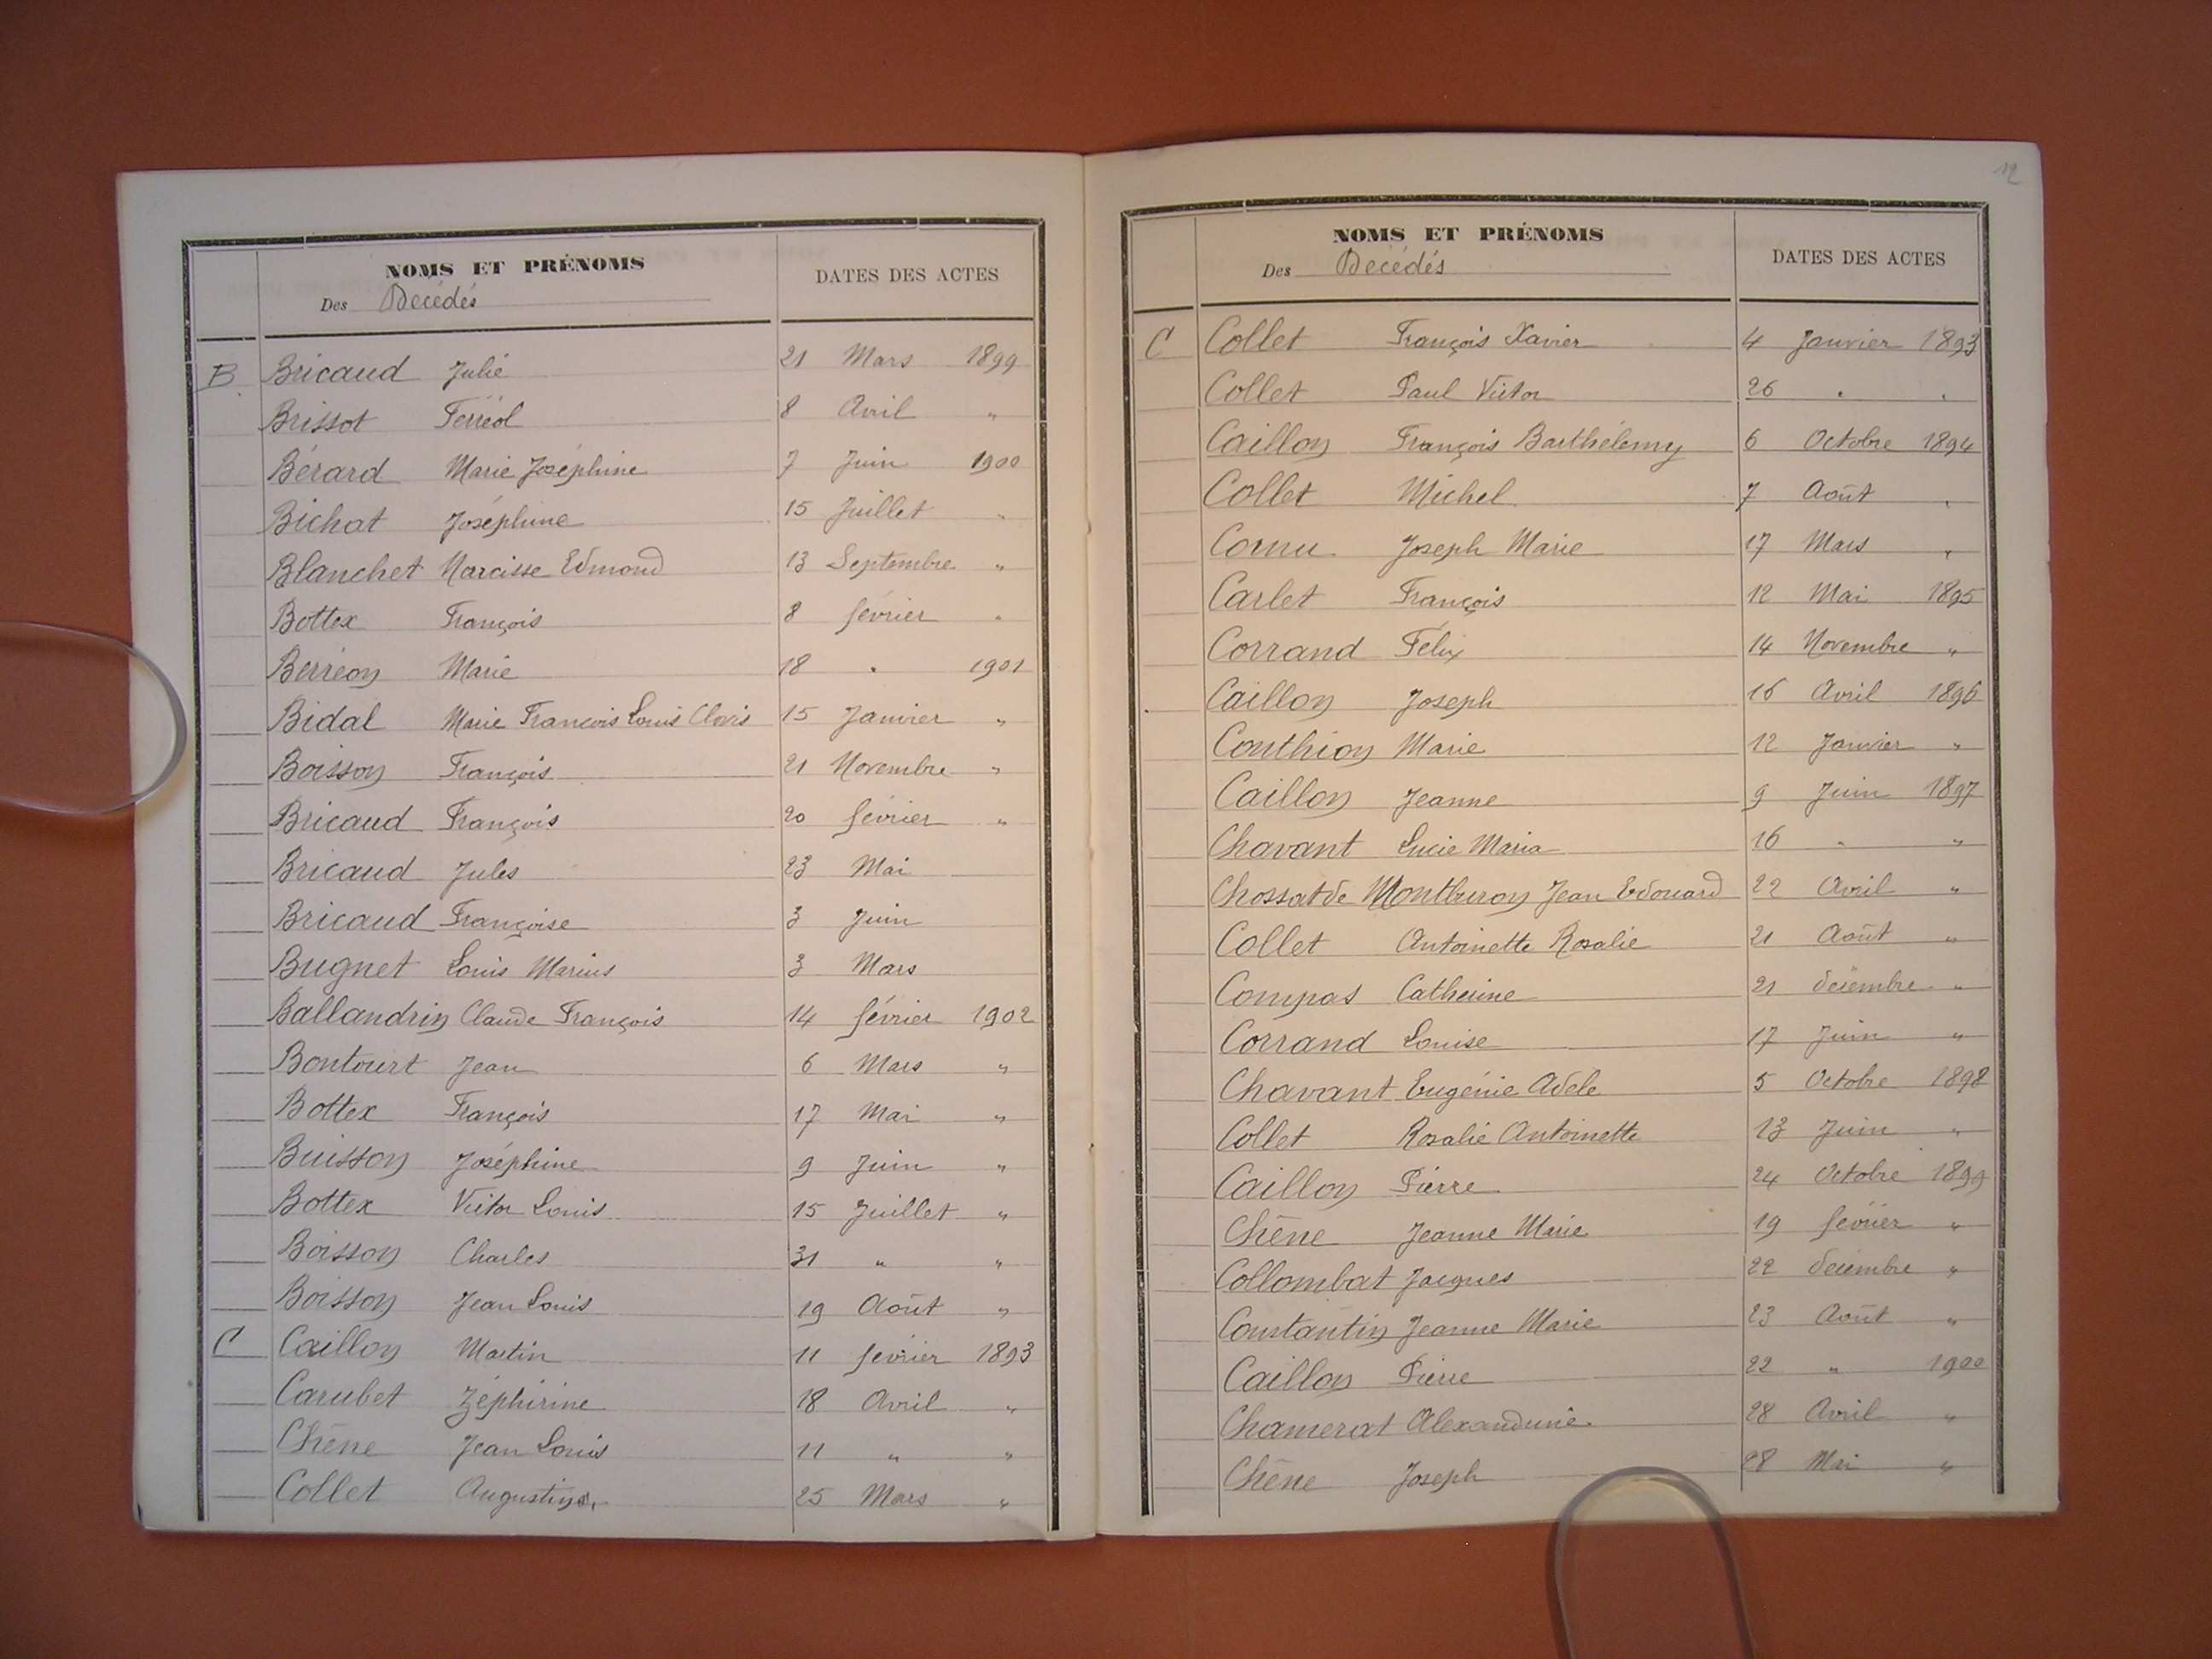 NOMS ET PRÉNOMS
Des Décédés
DATES DES ACTES
B Bricaud Julie 21 Mars 1899
Brissot Ferréol 8 Avril "
Bérard Marie Joséphine 7 Juin 1900
Bichat Joséphine 15 Juillet "
Blanchet Narcisse Edmond 13 Septembre "
Bottex François 8 février "
Berréon Marie 18 " 1901
Bidal Marie François Louis Clovis 15 Janvier "
Boisson François 21 Novembre "
Bricaud François 20 février "
Bricaud Jules 23 Mai
Bricaud Françoise 3 Juin
Bugnet Louis Marius 3 Mars
Ballandrin Claude François 14 février 1902
Bontourt Jean 6 Mars "
Bottex François 17 Mai "
Buisson Joséphine 9 Juin "
Bottex Victor Louis 15 Juillet "
Boisson Charles 31 " "
Boisson Jean Louis 19 Août "
C Caillon Martin 11 février 1893
Carubet Zéphirine 18 Avril "
Chêne Jean Louis 11 " "
Collet 25 Mars "
12
NOMS ET PRÉNOMS
Des Décédés
DATES DES ACTES
C Collet François Xavier 4 Janvier 1893
Collet Paul Victor 26 " "
Caillon François Barthélemy 6 Octobre 1894
Collet Michel 7 Août "
Cornu Joseph Marie 17 Mars "
Carlet François 12 Mai 1895
Corrand Félix 14 Novembre "
Caillon Joseph 16 Avril 1896
Conthion Marie 12 Janvier "
Caillon Jeanne 9 Juin 1897
Chavant Lucie Maria 16 " "
Chossat de Montburon Jean Edouard 22 Avril "
Collet Antoinette Rosalie 21 Août "
Compas Catherine 21 décembre "
Corrand Louise 17 Juin "
Chavant Eugénie Adèle 5 Octobre 1898
Collet Rosalie Antoinette 13 Juin "
Caillon Pierre 24 Octobre 1899
Chêne Jeanne Marie 19 février "
Collombat Jacques 22 décembre "
Constantin Jeanne Marie 23 Août "
Caillon Pierre 22 " 1900
Chamerat Alexandrine 28 Avril "
Chêne Joseph 28 Mai "